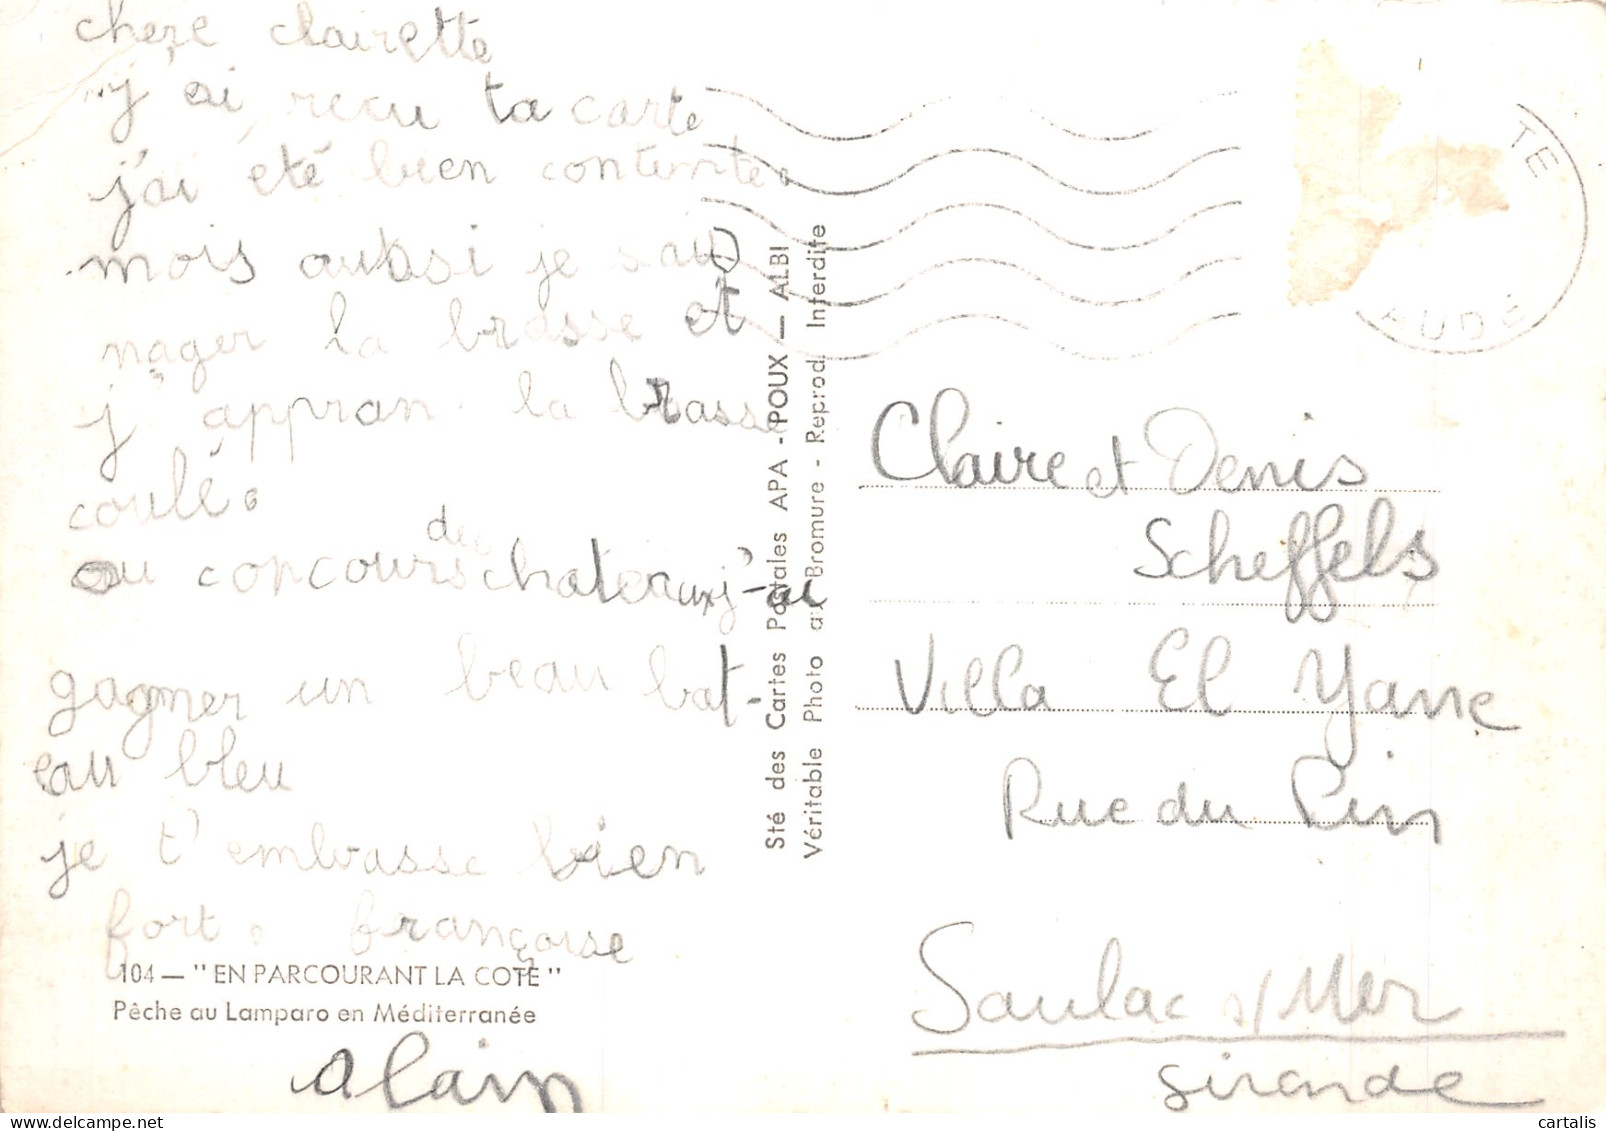 chere clairette
j'ai recu ta carte
j'ai eté bien contente.
mois aubsi je sais
nager la brasse et
j'appran la brasse
coulé.
au concours des chateaux j'-ai
gagner un beau bat-
eau bleu
je t'embrasse bien
fort. françoise
104 — " EN PARCOURANT LA COTE "
Pêche au Lamparo en Méditerranée
alain
Sté des Cartes Postales APA - POUX — ALBI
Véritable Photo au Bromure - Reprod. Interdite
TE
AUDE
Claire et Denis
Scheffels
Villa El Yanne
Rue du Pin
Soulac s/Mer
Gironde
cartalis